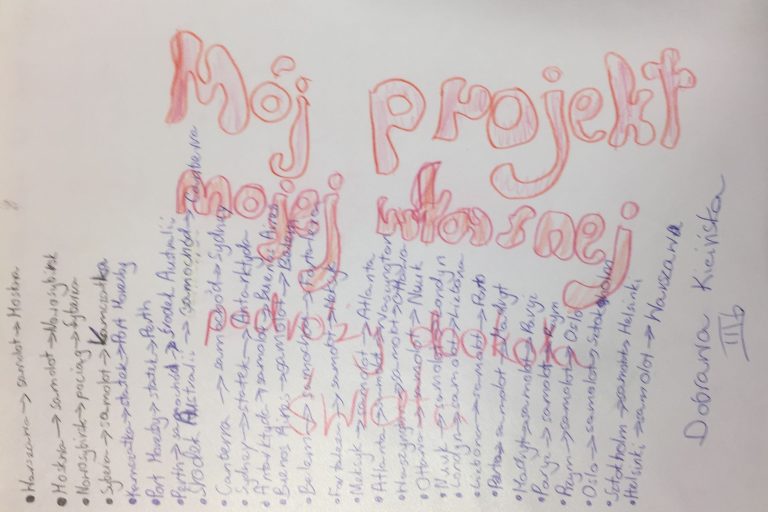 Mój projekt
mojej własnej
podróży dookoła
świata
Dobrawa Kicińska
III b
• Warszawa → samolot → Moskwa
• Moskwa → samolot → Nowosybirsk
• Nowosybirsk → pociąg → Syberia
• Syberia → samolot → Kamczatka
• Kamczatka → statek → Port Moresby
• Port Moresby → statek → Perth
• Perth → samochód → Środek Australii
• Środek Australii → samochód → Canberra
• Canberra → samochód → Sydney
• Sydney → statek → Antarktyda
• Antarktyda → samolot → Buenos Aires
• Buenos Aires → samolot → Belem
• Belem → samochód → Fortaleza
• Fortaleza → samolot → Meksyk
• Meksyk → samolot → Atlanta
• Atlanta → samolot → Waszyngton
• Waszyngton → samolot → Ottawa
• Ottawa → samolot → Nuuk
• Nuuk → samolot → Londyn
• Londyn → samolot → Lizbona
• Lizbona → samolot → Porto
• Porto → samolot → Madryt
• Madryt → samolot → Paryż
• Paryż → samolot → Rzym
• Rzym → samolot → Oslo
• Oslo → samolot → Sztokholm
• Sztokholm → samolot → Helsinki
• Helsinki → samolot → Warszawa